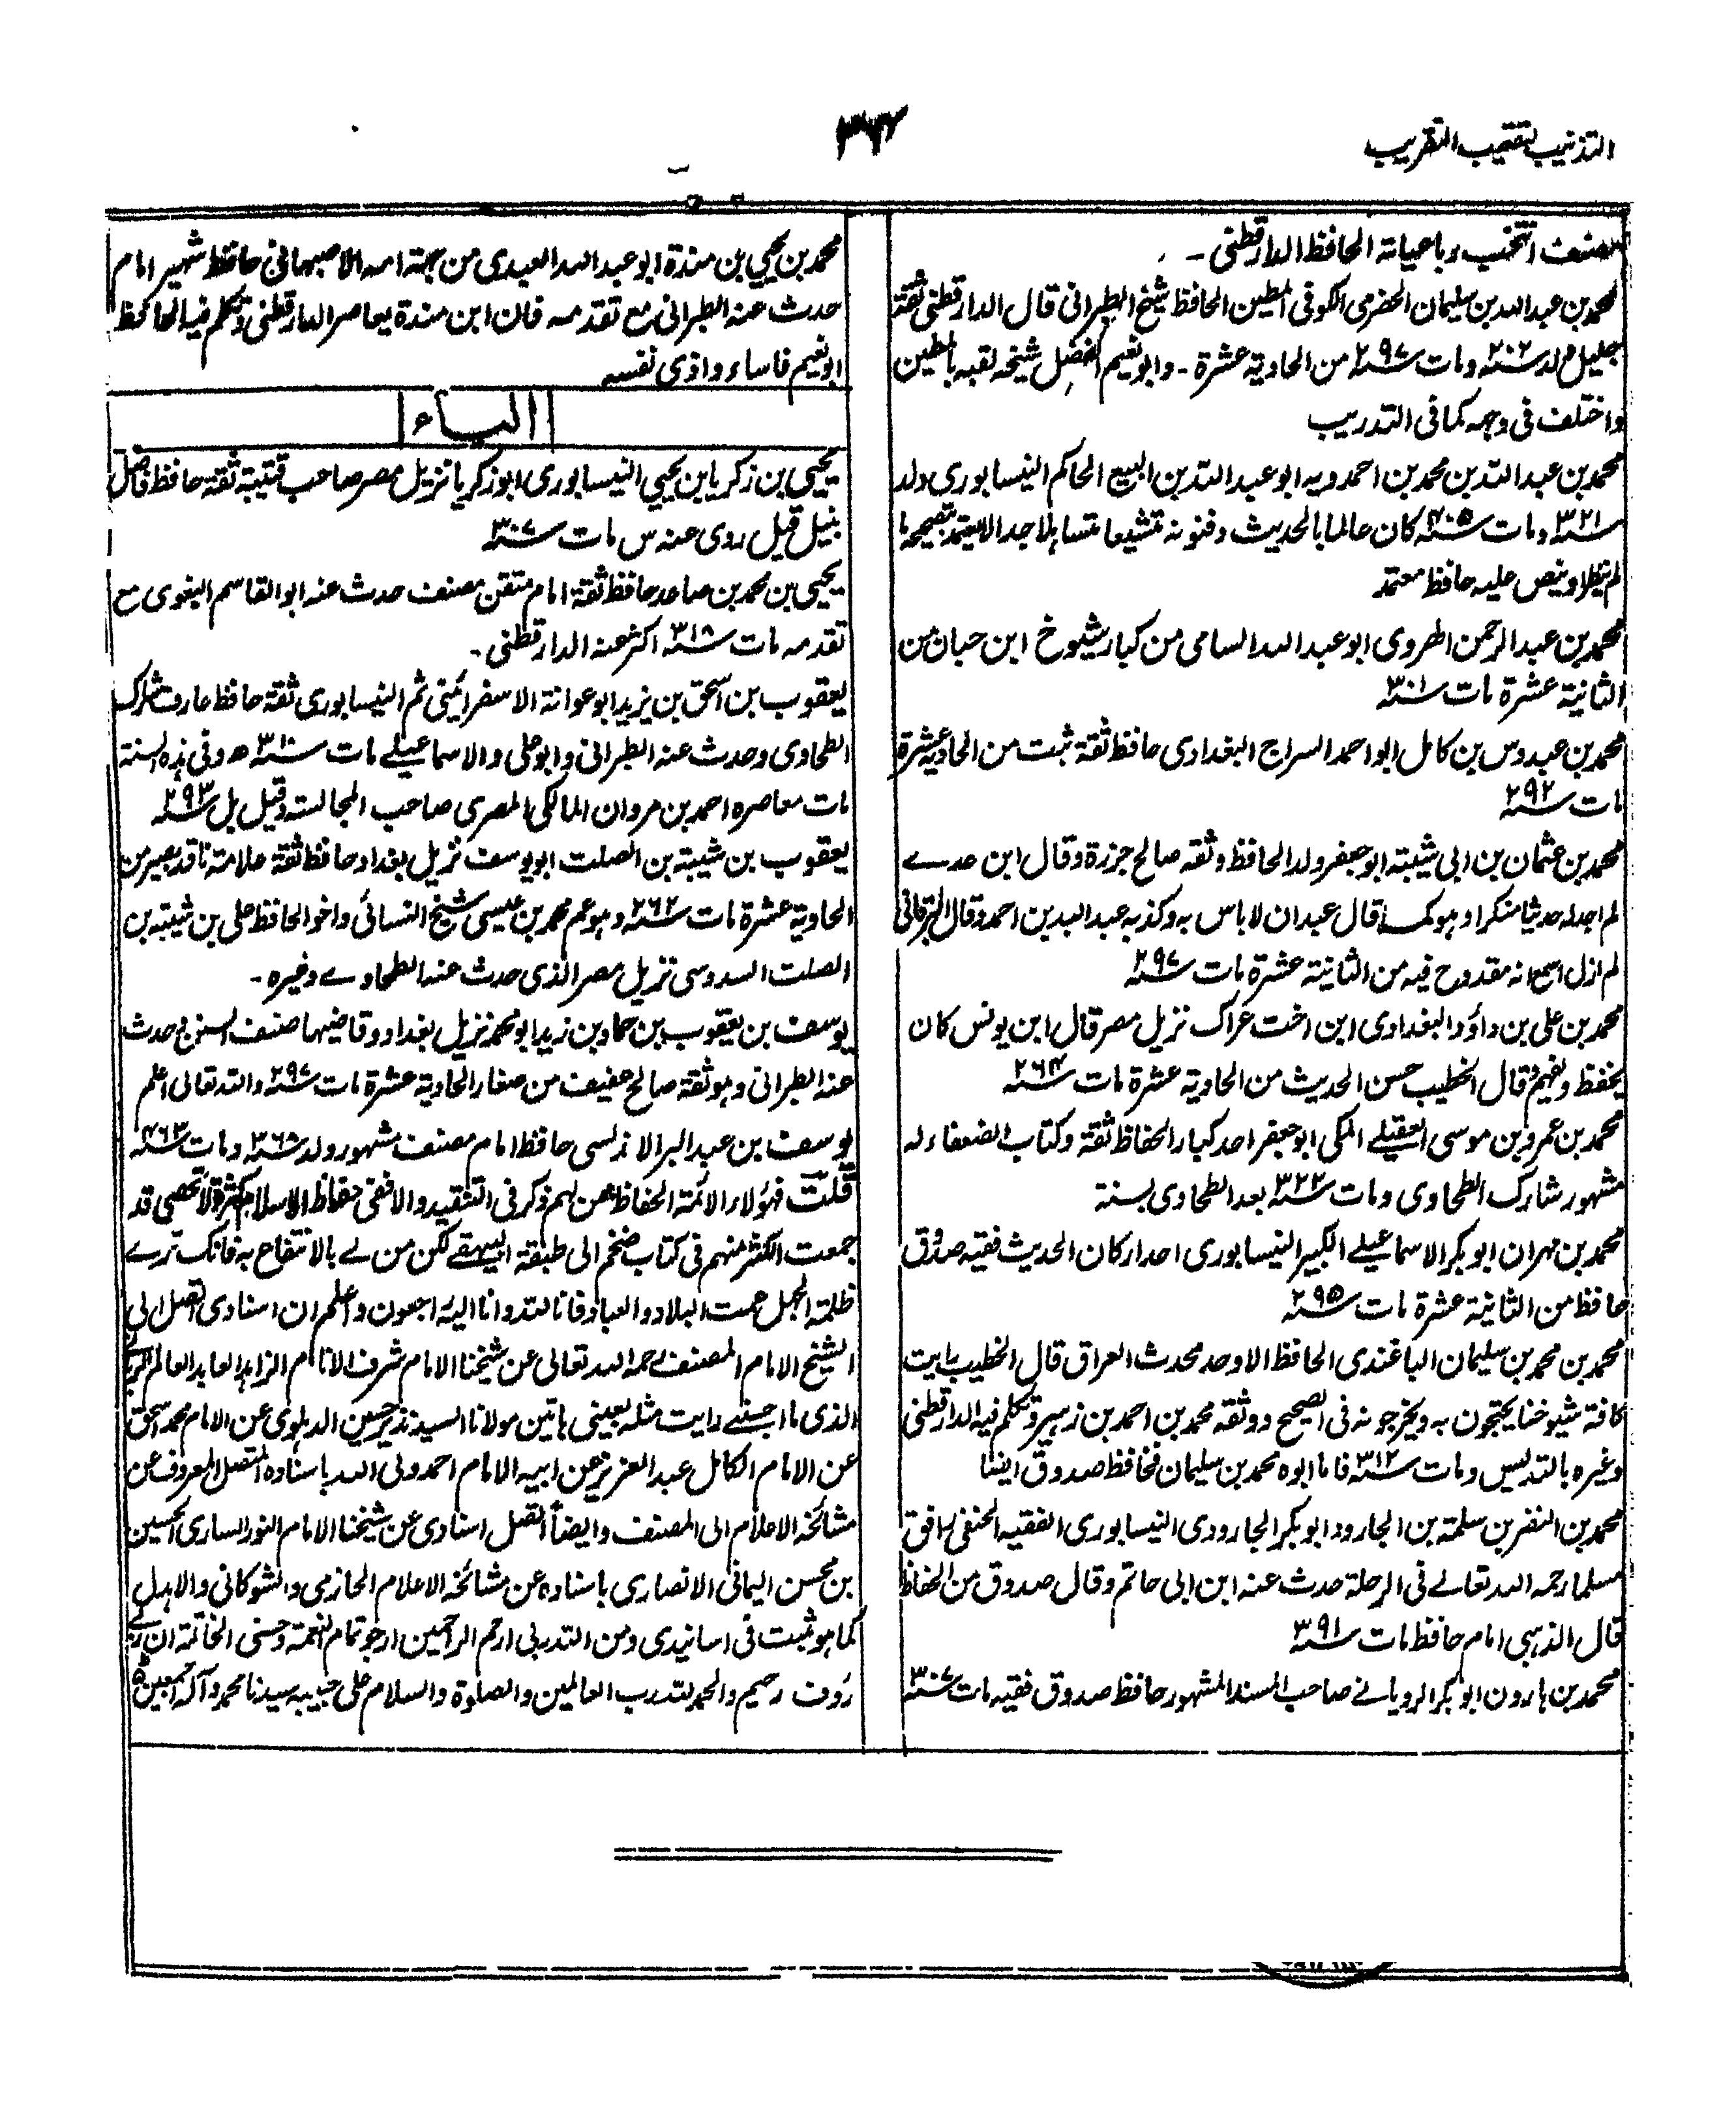 التذنيب لتعقيب التقريب
٣٤٢
مصنف انتخب رباعياته الحافظ الدارقطنى -
محمد بن عبد الله بن سليمان الحضرمى الكوفى المطين الحافظ شيخ الطبرانى قال الدارقطنى ثقة
جليل ولد سنه ٢٠٢ ومات سنه ٢٩٧ من الحادية عشرة - وابو نعيم الفضل شيخه لقبه بالمطين
واختلف فى وجهه كما فى التدريب
محمد بن عبد الله بن محمد بن احمدويه ابو عبد الله بن البيع الحاكم النيسابورى ولد
سنه ٣٢١ ومات سنه ٤٠٥ كان عالما بالحديث وفنونه متشيعا متساهلا جدا لا يعتمد بتصحيحه ما
لم ينظر او ينص عليه حافظ معتمد
محمد بن عبد الرحمن الهروى ابو عبد الله السامى من كبار شيوخ ابن حبان من
الثانية عشرة مات سنه ٣٠١
محمد بن عبدوس بن كامل ابو احمد السراج البغدادى حافظ ثقة ثبت من الحادية عشرة
مات سنه ٢٩٢
محمد بن عثمان بن ابى شيبة ابو جعفر ولد الحافظ وثقه صالح جزرة وقال ابن عدے
لم اجد له حديثا منكرا وهو كما قال عبدان لا باس به وكذبه عبد الله بن احمد وقال البرقانى
لم ازل اسمع انه مقدوح فيه من الثانية عشرة مات سنه ٢٩٧
محمد بن على بن داؤد البغدادى ابن اخت غراك نزيل مصر قال ابن يونس كان
يحفظ ويفهم وقال الخطيب حسن الحديث من الحادية عشرة مات سنه ٢٦٤
محمد بن عمرو بن موسى العقيلے المكى ابو جعفر احد كبار الحفاظ ثقة وكتاب الضعفاء له
مشهور شارك الطحاوى ومات سنه ٣٢٢ بعد الطحاوى بسنة
محمد بن مهران ابو بكر الاسماعيلے الكبير النيسابورى احد اركان الحديث فقيه صدوق
حافظ من الثانية عشرة مات سنه ٢٩٥
محمد بن محمد بن سليمان الباغندى الحافظ الاوحد محدث العراق قال الخطيب رايت
كافة شيوخنا يحتجون به ويخرجونه فى الصحيح ووثقه محمد بن احمد بن زهير وتكلم فيه الدارقطنى
وغيره بالتدليس ومات سنه ٣١٢ فاما ابوه محمد بن سليمان فحافظ صدوق ايضا
محمد بن النضر بن سلمة بن الجارود ابو بكر الجارودى النيسابورى الفقيه الحنفى رافق
مسلما رحمه الله تعالے فى الرحلة حدث عنه ابن ابى حاتم وقال صدوق من الحفاظ
قال الذهبى امام حافظ مات سنه ٣٩١
محمد بن هارون ابو بكر الرويانے صاحب المسند المشهور حافظ صدوق فقيه مات سنه ٣٠٧
محمد بن يحيى بن مندة ابو عبد الله العبدى من جهة امه الاصبهانى حافظ شهير امام
حدث عنه الطبرانى مع تقدمه فان ابن مندة يعاصر الدارقطنى وتكلم فيه الحافظ
ابو نعيم فاساء واذى نفسه
الياء
يحيى بن زكريا بن يحيى النيسابورى ابو زكريا نزيل مصر صاحب قتيبة ثقة حافظ فاضل
نبيل قيل روى عنه س مات سنه ٣٠٧
يحيى بن محمد بن صاعد حافظ ثقة امام متقن مصنف حدث عنه ابو القاسم البغوى مع
تقدمه مات سنه ٣١٨ اكثر عنه الدارقطنى -
يعقوب بن اسحق بن يزيد ابو عوانة الاسفرائينى ثم النيسابورى ثقة حافظ عارف شارك
الطحاوى وحدث عنه الطبرانى وابو على والاسماعيلے مات سنه ٣١٠ ھ وفى هذه السنة
مات معاصره احمد بن مروان المالكى المصرى صاحب المجالسة وقيل بل سنه ٢٩٣
يعقوب بن شيبة بن الصلت ابو يوسف نزيل بغداد حافظ ثقة علامة ناقد بصير من
الحادية عشرة مات سنه ٢٦٢ وهو عم محمد بن عيسى شيخ النسائى واخو الحافظ على بن شيبة بن
الصلت السدوسى نزيل مصر الذى حدث عنه الطحاوے وغيره -
يوسف بن يعقوب بن حماد بن زيد ابو محمد نزيل بغداد وقاضيها صنف السنن وحدث
عنه الطبرانى وهو ثقة صالح عفيف من صغار الحادية عشرة مات سنه ٢٩٧ والله تعالى اعلم
يوسف بن عبد البر الاندلسى حافظ امام مصنف مشهور ولد سنه ٣٦٨ ومات سنه ٤٦٣
قلت فهؤلاء الائمة الحفاظ ممن لهم ذكر فى التنقيد والا ففى حفاظ الاسلام كثرة لا تحصى قد
جمعت الكثير منهم فى كتاب ضخم الى طبقة البيهقے لكن من لے بالانتفاع به فانك ترے
ظلمة الجهل عمت البلاد والعباد فانا لله وانا اليه راجعون واعلم ان اسنادى اتصل الى
الشيخ الامام المصنف رحمه الله تعالى عن شيخنا الامام شرف الانام الزاهد العابد العالم الربانى
الذى ما احسبنے رايت مثله بعينى هاتين مولانا السيد نذير حسين الدهلوى عن الامام محمد اسحق
عن الامام الكامل عبد العزيز عن ابيه الامام احمد ولى الله باسناده المتصل المعروف عن
مشائخه الاعلام الى المصنف وايضا اتصل اسنادى عن شيخنا الامام النور السارى الحسين
بن محسن اليمانى الانصارى باسناده عن مشائخه الاعلام الحازمى والشوكانى والاهدل
كما هو ثبت فى اسانيدى ومن الله ربى ارحم الراحمين ارجو تمام النعمة وحسنى الخاتمة ان ربے
رؤف رحيم والحمد لله رب العالمين والصلوة والسلام على حبيبه سيدنا محمد وآله اجمعين